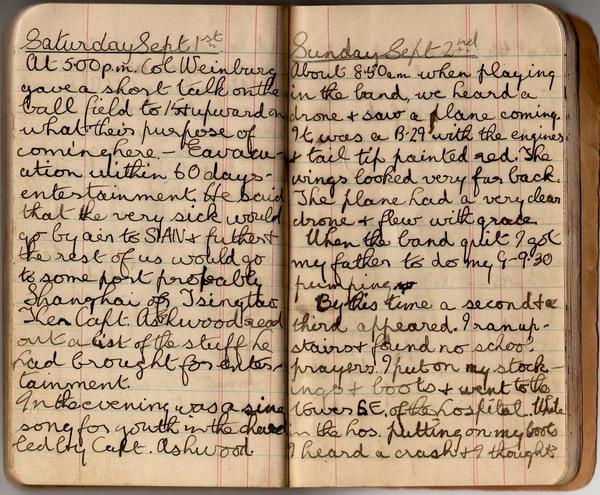 Saturday Sept 1st
At 5.00 p.m. Col Weinburg
gave a short talk on the
ball field to 14 & upward on
what their purpose of
coming here. - Eavacu-
ation within 60 days -
entertainment. He said
that the very sick would
go by air to SIAN & futher &
the rest of us would go
to some port propebly
Shanghai or Tsingtao.
Then Capt. Ashwood read
out a list of the stuff he
had brought for enter-
tainment.
In the evening was a sing
song for youth in the church
led by Capt. Ashwood
Sunday Sept 2nd
About 8.50 a.m when playing
in the band, we heard a
drone & saw a plane coming.
It was a B-29 with the engines
& tail tip painted red. The
wings looked very far back.
The plane had a very clear
drone & flew with grace.
When the band quit I got
my father to do my 9-9.30
pumping.
By this time a second & a
third appeared. I ran up-
stairs & found no school
prayers. I put on my stock-
ings & boots & went to the
tower S.E. of the hospital. While
in the hos. putting on my boots
I heard a crash & I thought